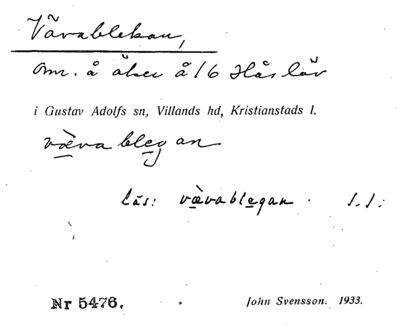 Vävablekan,
om. å åker å 16 Håslöv
i Gustav Adolfs sn, Villands hd, Kristianstads l.
vævablegan
Läs: vævablegan. I.I.
Nr 5476. John Svensson. 1933.